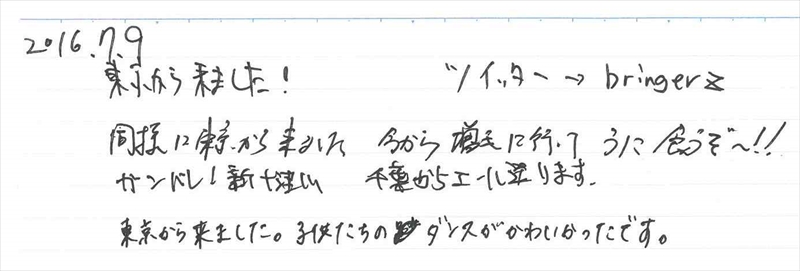 2016.7.9
東京から来ました! ツイッター→bringerz
同様に東京から来ました 今から増毛に行って うに食うぞ〜!!
ガンバレ!新十津川 千葉からエール送ります。
東京から来ました。子供たちのダンスがかわいかったです。